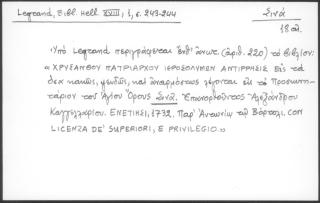 Legrand, Bibl. Hell. XVIII, 1, σ. 243-244
Σινά
18 αἰ.
Ὑπὸ Legrand περιγράφεται ἐπ' (ἀριθ. 220) τὸ βιβλίον:
«ΧΡΥΣΑΝΘΟΥ ΠΑΤΡΙΑΡΧΟΥ ΙΕΡΟΣΟΛΥΜΩΝ ΑΝΤΙΡΡΗΣΙΣ εἰς τὰ
ὅσα κακῶς, ψευδῶς, καὶ ἀναρμόστως λέγονται εἰς τὸ Προσκυνη-
τάριον τοῦ Ἁγίου Ὄρους Σινᾶ. Ἐπιστατοῦντος Ἀλεξάνδρου
Καγγελλαρίου. ΕΝΕΤΙΗΣΙ, 1732. Παρ' Ἀντωνίῳ τῷ Βόρτολι. CON
LICENZA DE' SUPERIORI, E PRIVILEGIO.»